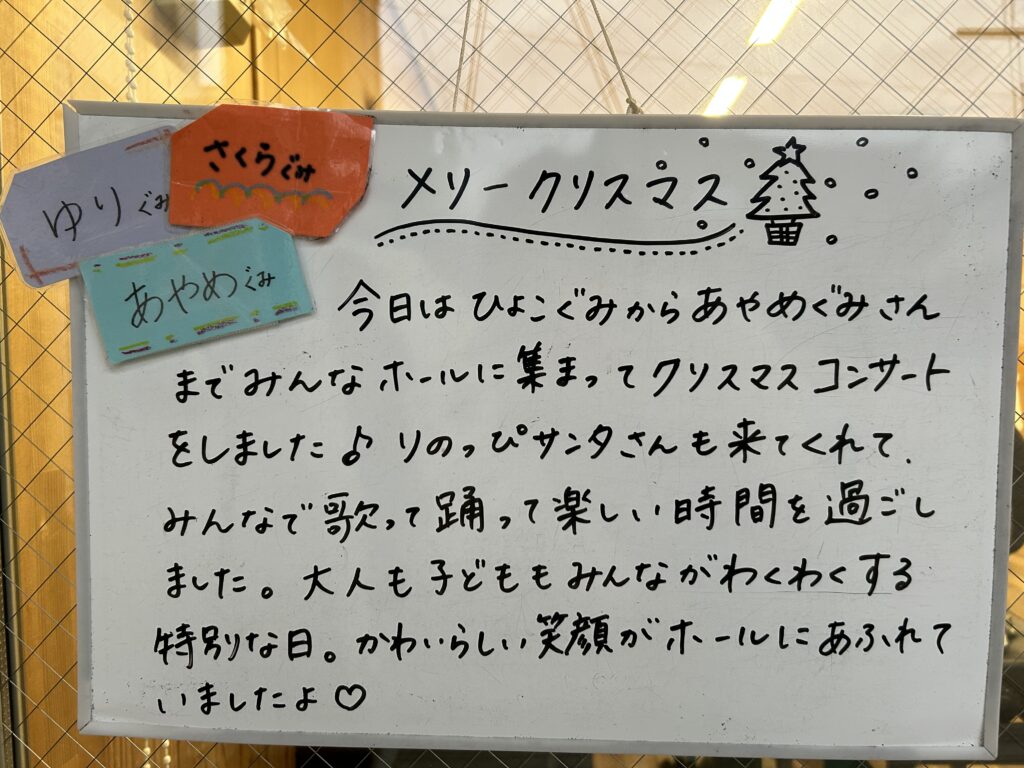 さくらぐみ
ゆりぐみ
あやめぐみ
メリークリスマス
今日はひよこぐみからあやめぐみさん
までみんなホールに集まってクリスマスコンサート
をしました♪ りのっぴサンタさんも来てくれて、
みんなで歌って踊って楽しい時間を過ごし
ました。大人も子どももみんながわくわくする
特別な日。かわいらしい笑顔がホールにあふれて
いましたよ♡